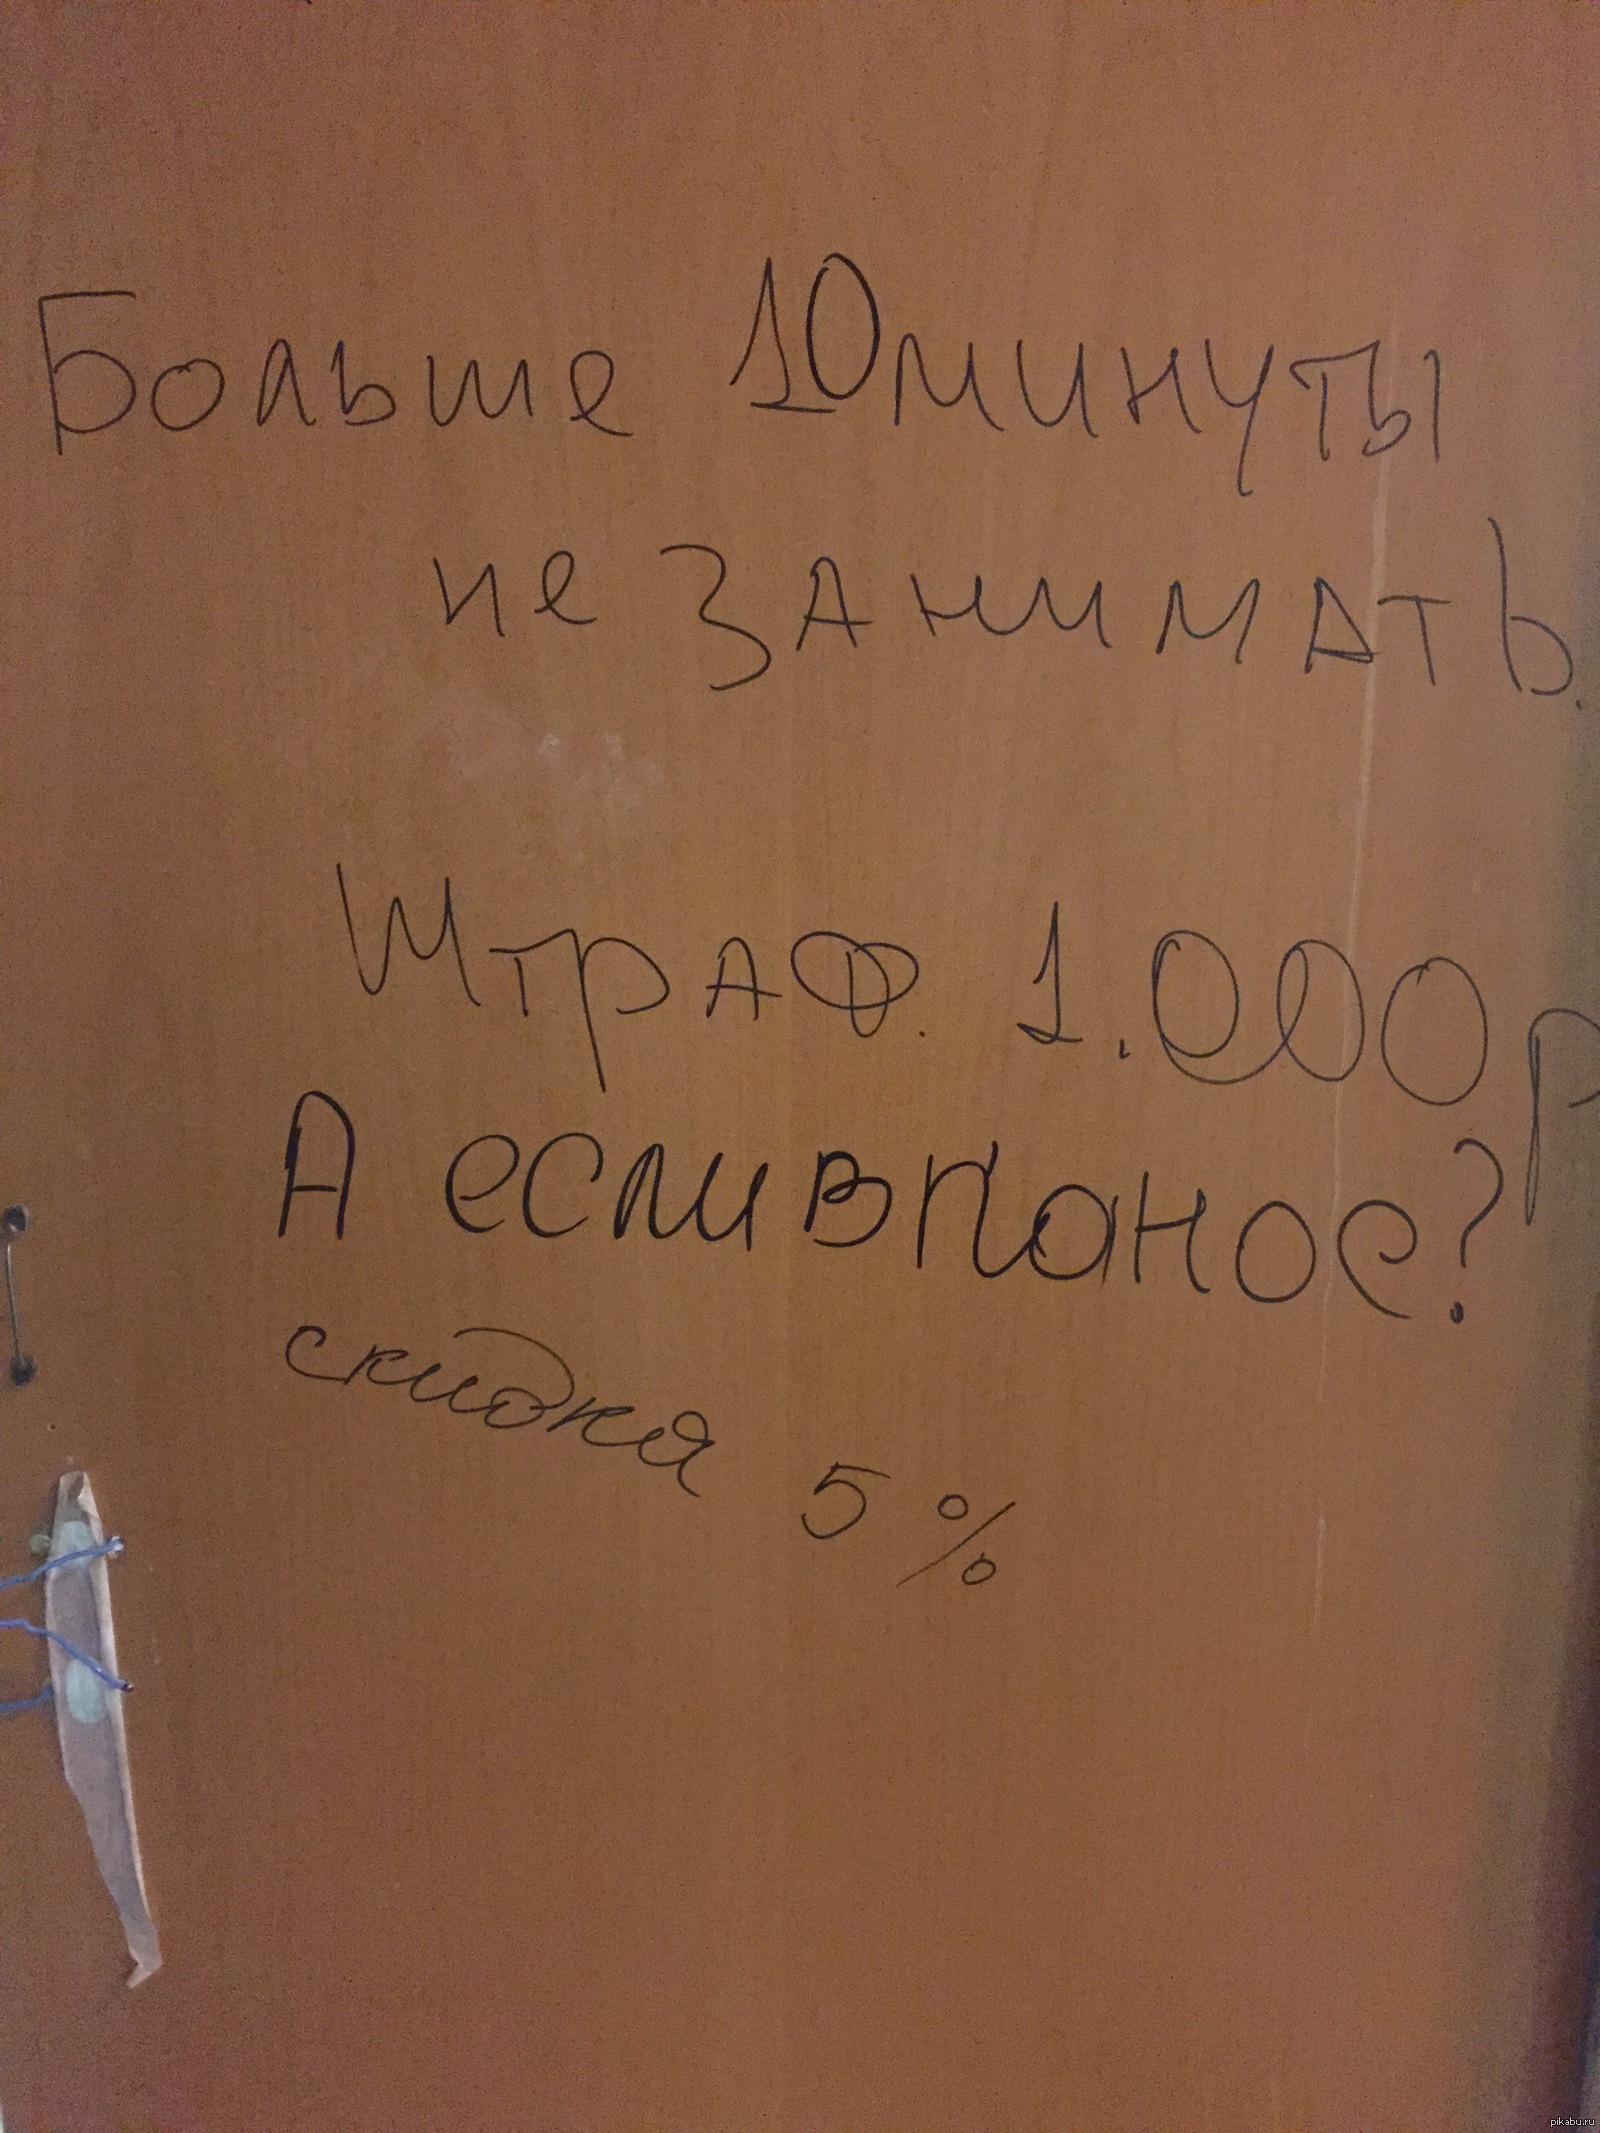 Больше 10 минуты
не занимать.
Штраф. 1.000р
А если впонос?
скидка 5 %
pikabu.ru